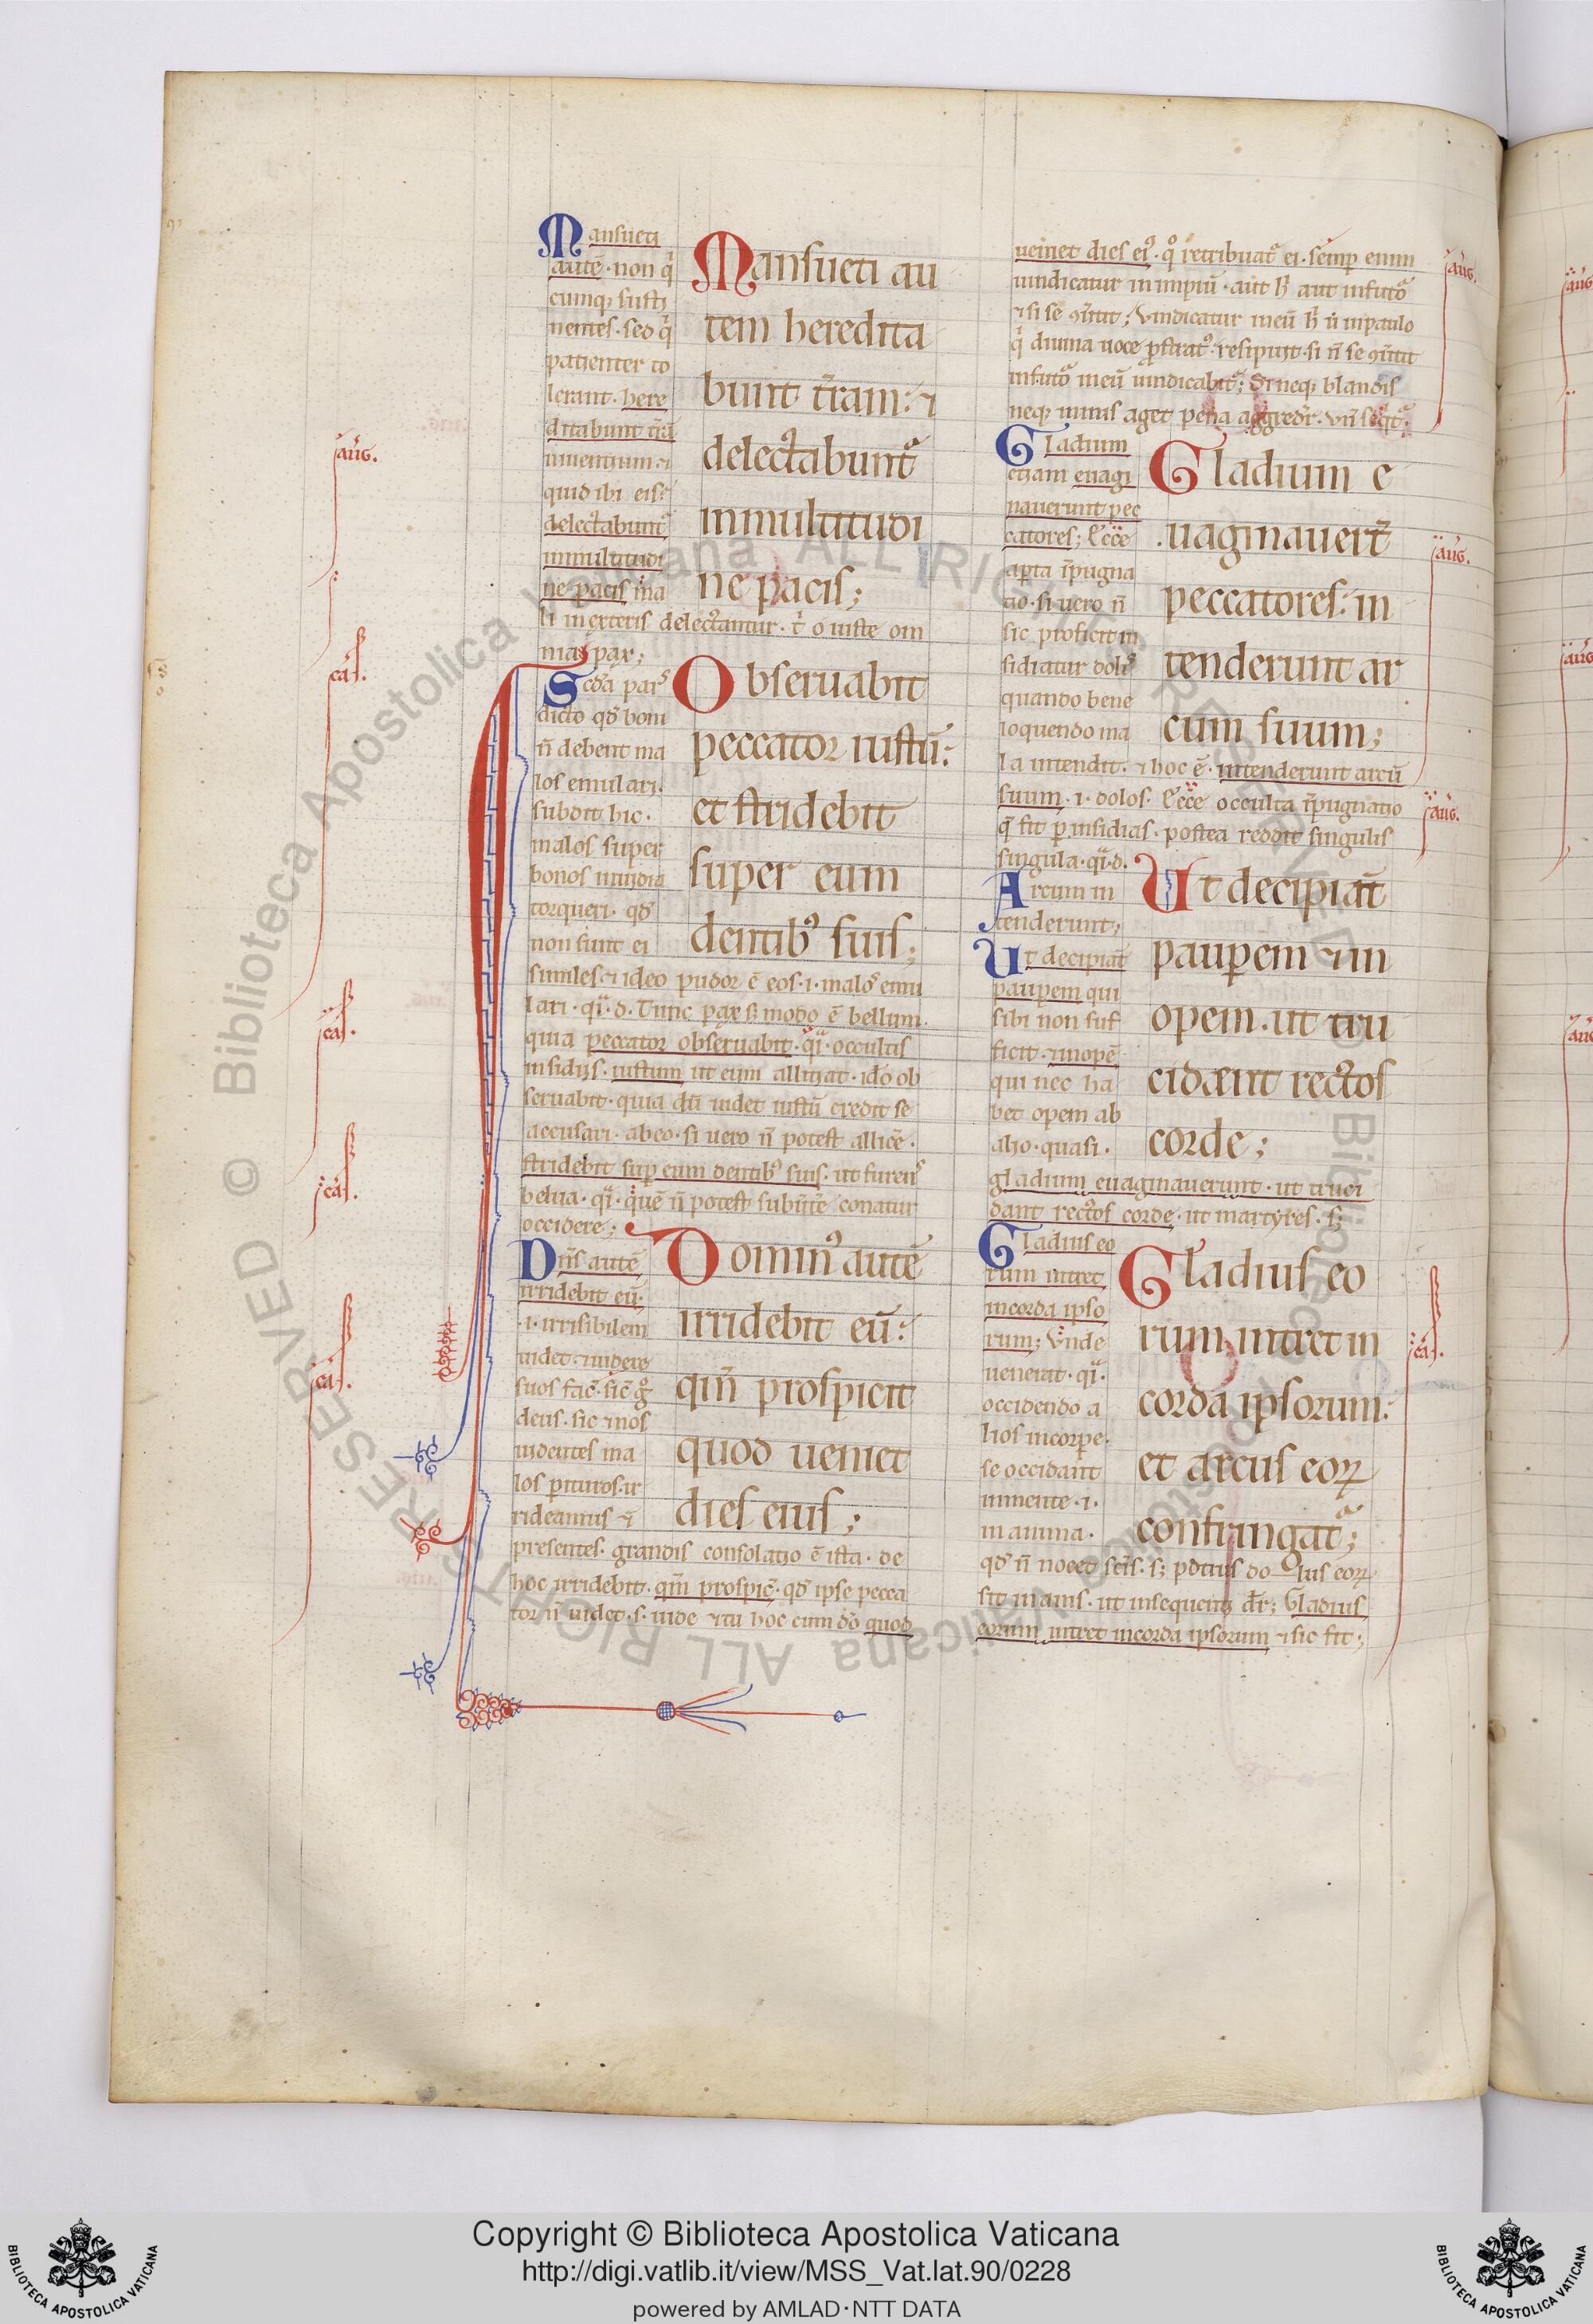 Mansueti
autē · non q̇
cumq; susti
nentes · sed q̇
patienter to
lerant · here
ditabunt t̄rā
uiuentium ⁊
quid ibi eis
delectabunt᷑
inmultitudi
ne pacis
Mansueti au
tem heredita
bunt t̄ram: ⁊
delectabunt᷑
inmultitudi
ne pacis;
li inexteris delectantur · t̄ o iuste om
nia pax;
Scd̄a pars
dicto qd̄ boni
n̄ debent ma
los emulari.
subdit hic ·
malos super
bonos inuidia
torqueri · qd̄
non sunt ei
Obseruabit
peccator iustū:
et stridebit
super eum
dentibꝰ suis;
similes ⁊ ideo pudor ē eos · i · malos emu
lari · qͥ · d · Tunc pax s; modo ē bellum ·
quia peccator obseruabit · qͥ · occultis
insidijs · iustum ut eum alliciat · ido ob
seruabit · quia dū uidet iustū credit se
accusari · ab eo · si uero n̄ potest allicē ·
stridebit suꝑ eum dentibꝰ suis · ut furens
belua · qͥ · quē n̄ potest conatur
occidere;
Dn̄s autē
irridebit eū ·
· i · irrisibilem
uidet · ⁊ uidere
suos fac̄ · sic̄
deus · sic ⁊ nos
uidentes ma
los ꝑituros · ir
rideamus ⁊
Dominꝰ autē
irridebit eū:
qm̄ prospicit
quod ueniet
dies eius;
presentes · grandis consolatio ē ista · de
hoc irridebit · qm̄ prospic̄ · qd̄ ipse pecca
tor n̄ uidet · s · uide ⁊ tu hoc cum dō quod
ueniet dies eiꝰ · retribuat᷑ ei · semꝑ enim
uindicatur in impiū · aut aut infuto᷑
⁊ si se ꝯ̄tit; Vindicatur meū
q̇ diuina uoce · resipuit · si n̄ se ꝯ̄tit
infuto᷑ meū uindicabit᷑; Si neq; blandis
neq; minis aget pena aggredr̄ · vn̄ seqt᷑ ·
Gladium
etiam euagi
nauerunt pec
catores; Ecce
aꝑta īpugna
tio · si uero n̄
sic proficit in
sidiatur dolis
quando bene
loquendo ma
Gladium e
uaginauer̄t
peccatores: in
tenderunt ar
cum suum;
la intendit · ⁊ hoc ē · intenderunt arcū
suum · i · dolos · Ecce occulta īpugnatio
q̄ fit ꝑ insidias · postea reddit singulis
singula · qͥ · d ·
Arcum in
tenderunt;
Ut decipiāt
pauꝑem qui
sibi non suf
ficit · ⁊ inopē
qui nec ha
bet opem ab
alio · quasi ·
Ut decipiāt
pauꝑem ⁊ in
opem · ut tru
cident rectos
corde;
gladium euaginauerunt · ut truci
dant rectos corde · ut martyres · s;
Gladius eo
rum intret
incorda ipso
rum; Vnde
uenerat · qͥ ·
occidendo a
lios incorpe ·
se occidant
inmente · i ·
in anima ·
Gladius eo
rum intret in
corda ipsorum:
et arcus eoꝝ
confringat᷑;
qd̄ n̄ nocet · s; potius dolus eoꝝ
fit inanis · ut insequenti dr̄; Gladius
eorum intret incorda ipsorum ⁊ sic fit;
aug.
cas.
cas.
cas.
cas.
aug.
aug.
aug.
cas.
Copyright © Biblioteca Apostolica Vaticana
http://digi.vatlib.it/view/MSS_Vat.lat.90/0228
powered by AMLAD·NTT DATA
BIBLIOTECA APOSTOLICA VATICANA
BIBLIOTECA APOSTOLICA VATICANA
© Biblioteca Apostolica Vaticana ALL RIGHTS RESERVED © Biblioteca Apostolica Vaticana ALL RIGHTS RESERVED